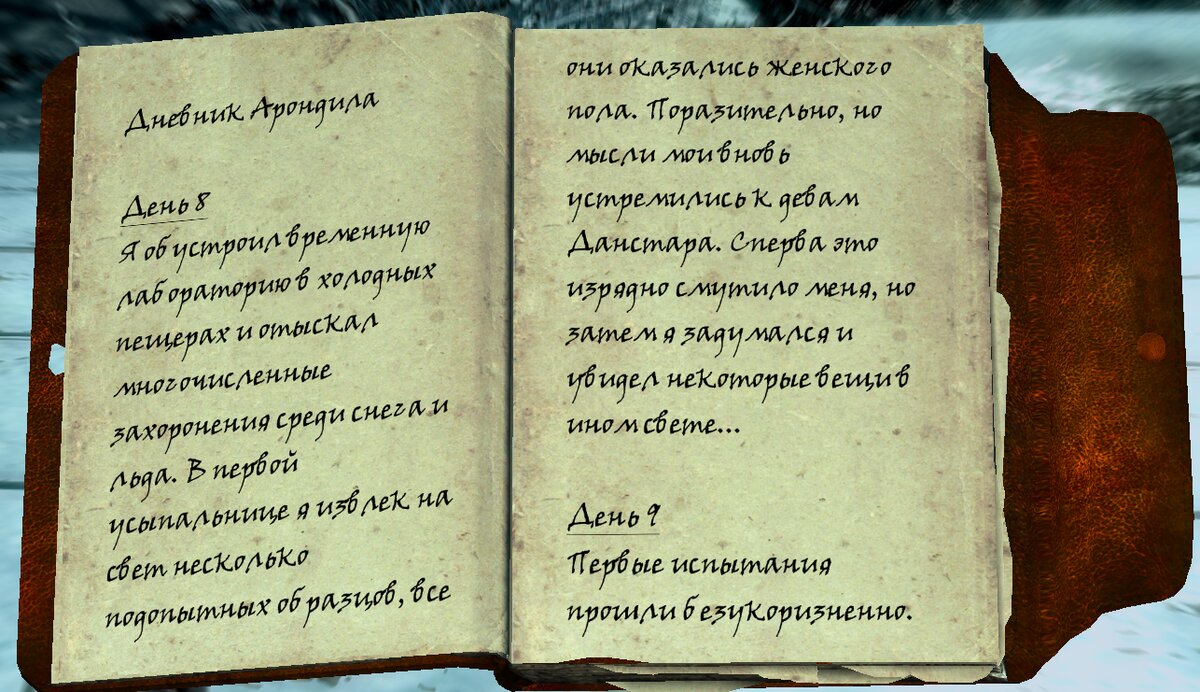 Дневник Арондила
День 8
Я обустроил временную
лабораторию в холодных
пещерах и отыскал
многочисленные
захоронения среди снега и
льда. В первой
усыпальнице я извлек на
свет несколько
подопытных образцов, все
они оказались женского
пола. Поразительно, но
мысли мои вновь
устремились к девам
Данстара. Сперва это
изрядно смутило меня, но
затем я задумался и
увидел некоторые вещи в
ином свете...
День 9
Первые испытания
прошли безукоризненно.